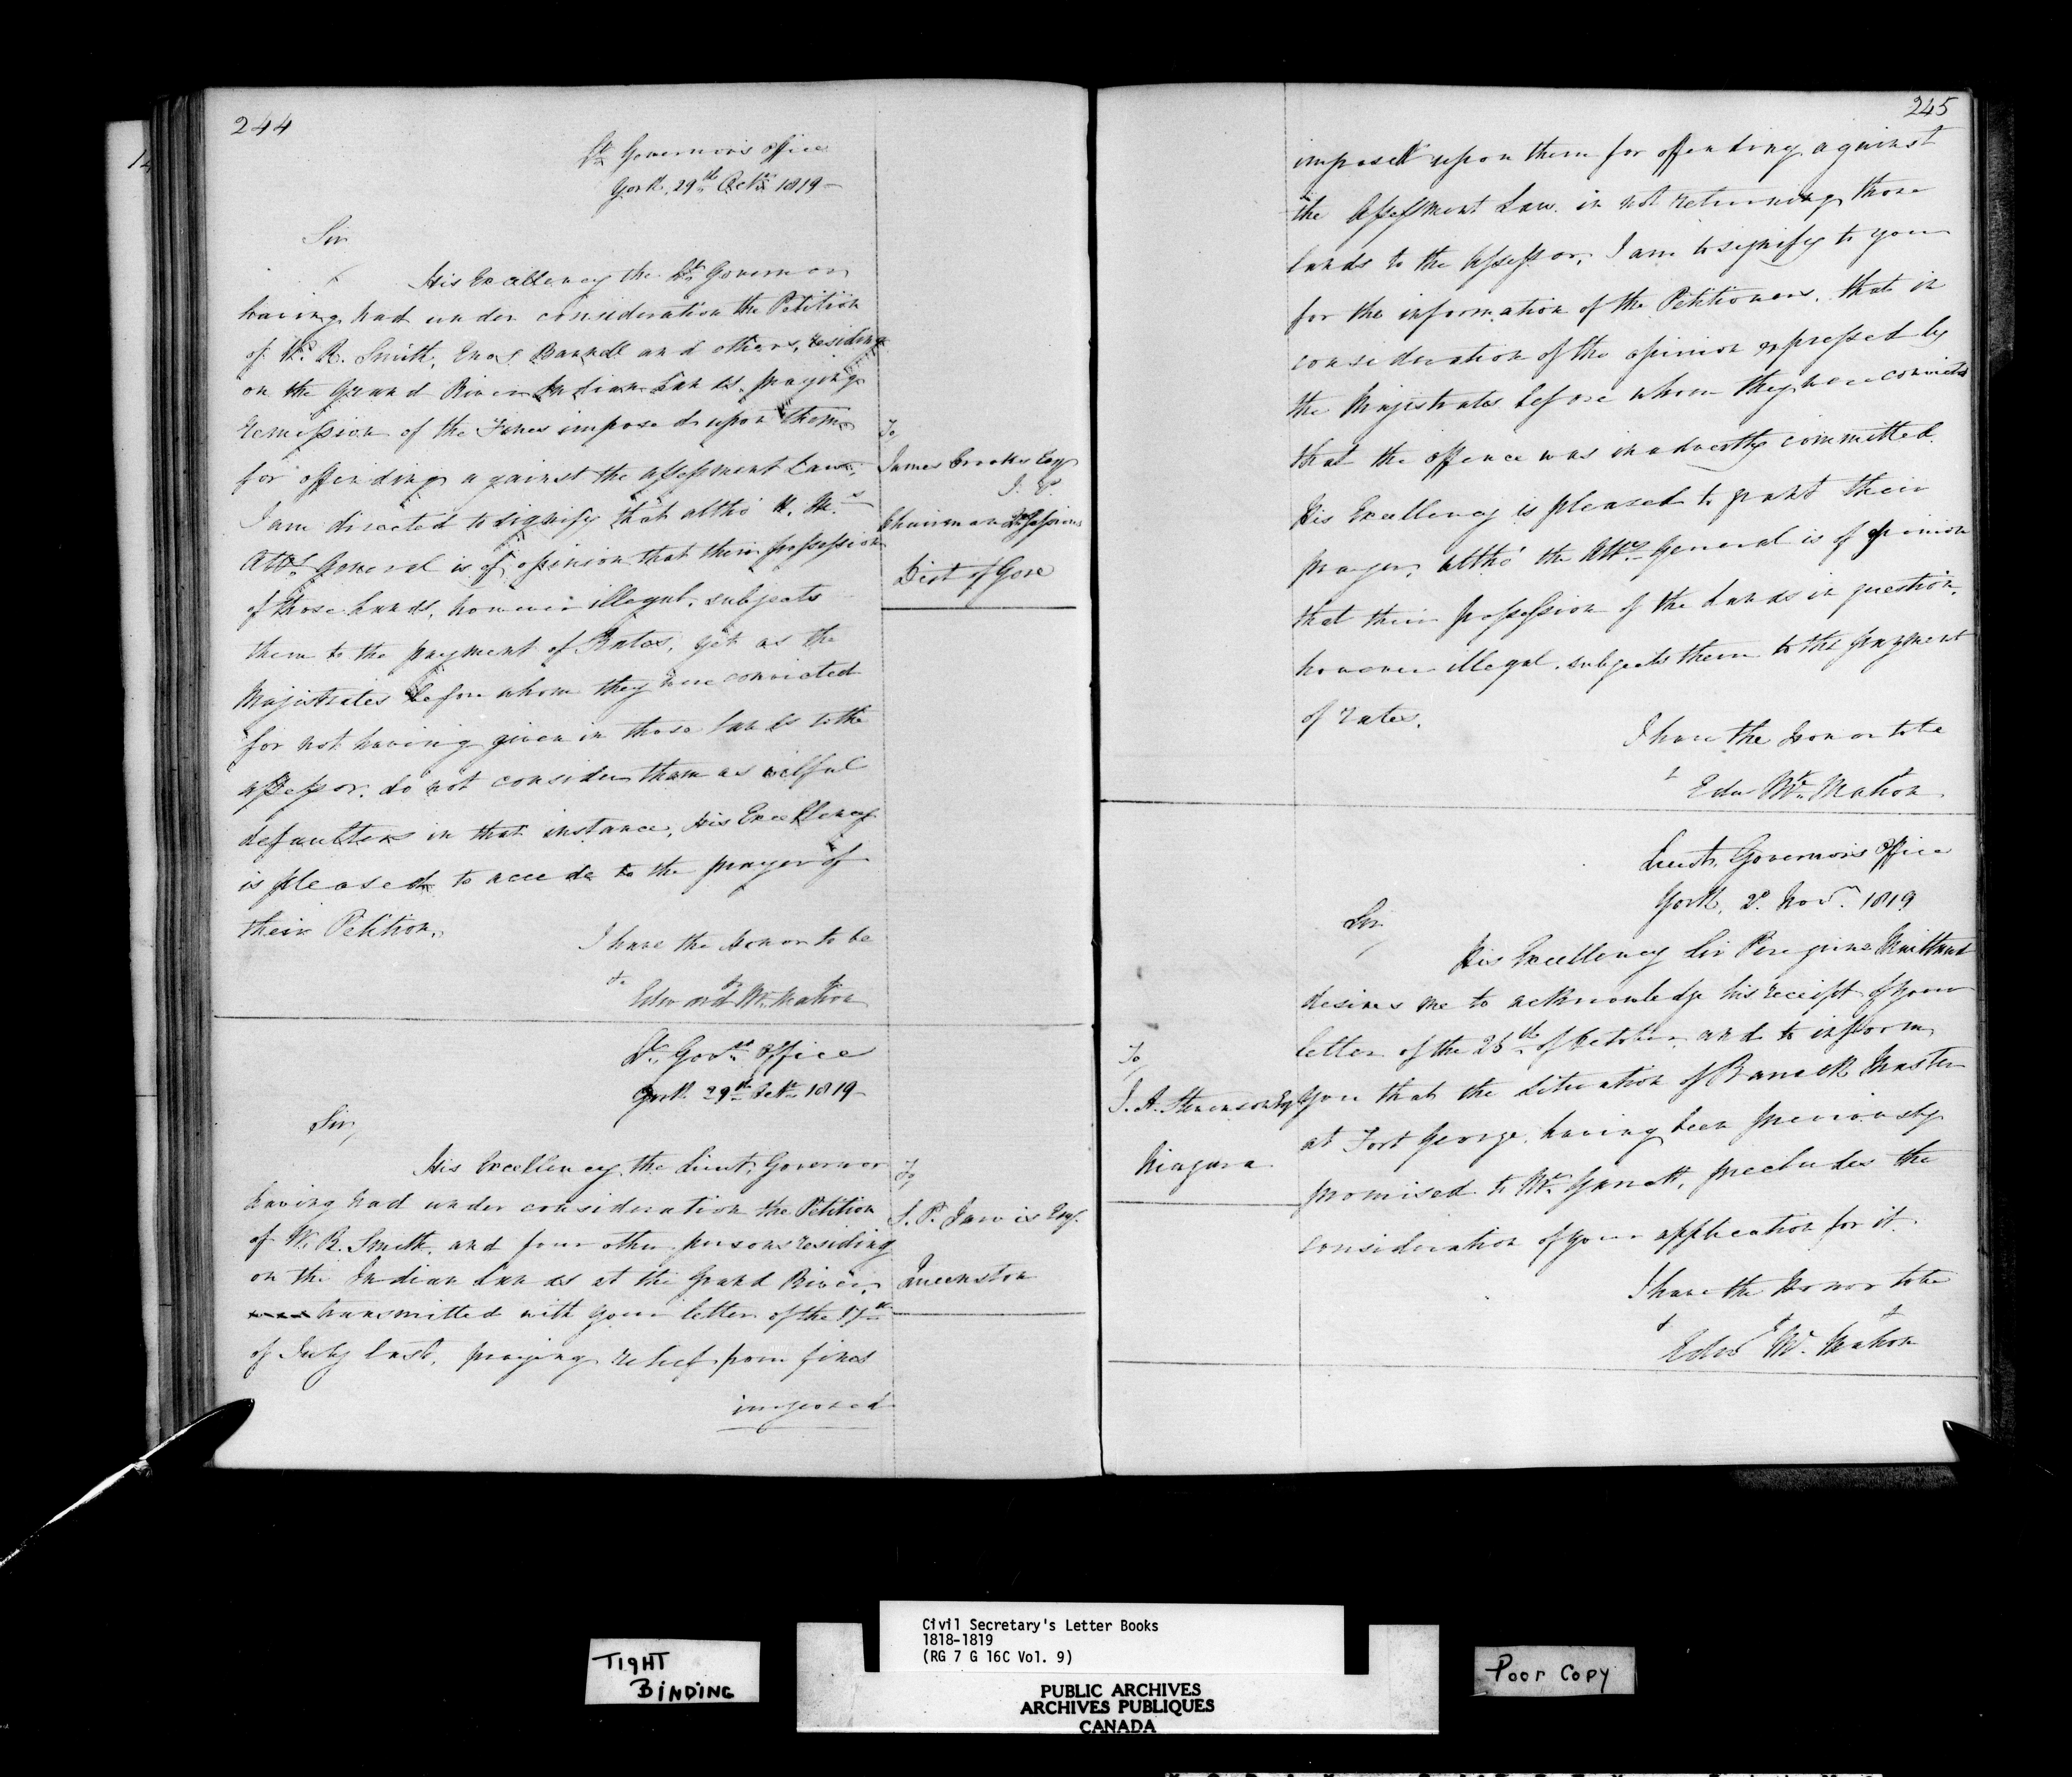 244
Lt Governor's Office
York 29th Octr 1819 –
Sir
His Excellency the Lt Governor
having had under consideration the Petition
of W. R. Smith, and others, residing
on the Grand River Indian Lands, praying
remission of the Fines imposed upon them
for offending against the assessment Law,
I am directed to signify that altho' H. M.s
Atty General is of opinion that their possession
of those Lands, however illegal, subjects
them to the payment of Rates, yet as the
Magistrates before whom they were convicted
for not having given in those lands to the
assessor, do not consider them as wilful
defaulters in that instance, His Excellency
is pleased to accede to the prayer of
their Petition.
I have the Honor to be
&c
Edward McMahon
To,
James Crooks Esqr
J. P.
Chairman Qr Sessions
Dist of Gore
Lt. Govrs Office
York 29th Octr 1819 –
Sir,
His Excellency the Lieut. Governor
having had under consideration the Petition
of W. R. Smith, and four other persons residing
on the Indian Lands at the Grand River,
transmitted with your letter of the 17th
of July last, praying relief from fines
imposed
To,
S. P. Jarvis Esqr.
Queenston
245
imposed upon them for offending against
the Assessment Law in not returning those
lands to the Assessor, I am to signify to you
for the information of the Petitioners, that in
consideration of the opinion expressed by
the Magistrates before whom they were convicted
that the offence was inadvertly committed
His Excellency is pleased to grant their
prayer, altho' the Atty General is of opinion
that their possession of the Lands in question,
however illegal, subjects them to the payment
of rates.
I have the Honor to be
&
Edw McMahon
Lieut. Governor's Office
York, 2d. Novr. 1819
Sir,
His Excellency Sir Peregrine Maitland
desires me to acknowledge his receipt of your
letter of the 25th of October and to inform
you that the Situation of Barrack Master
at Fort George, having been previously
promised to Mr. Garrett, precludes the
consideration of your application for it.
I have the Honor to be
&
Edwd Mc. Mahon
To,
J. A. Stevenson Esqr
Niagara
TIGHT
BINDING
Civil Secretary's Letter Books
1818-1819
(RG 7 G 16C Vol. 9)
PUBLIC ARCHIVES
ARCHIVES PUBLIQUES
CANADA
Poor Copy